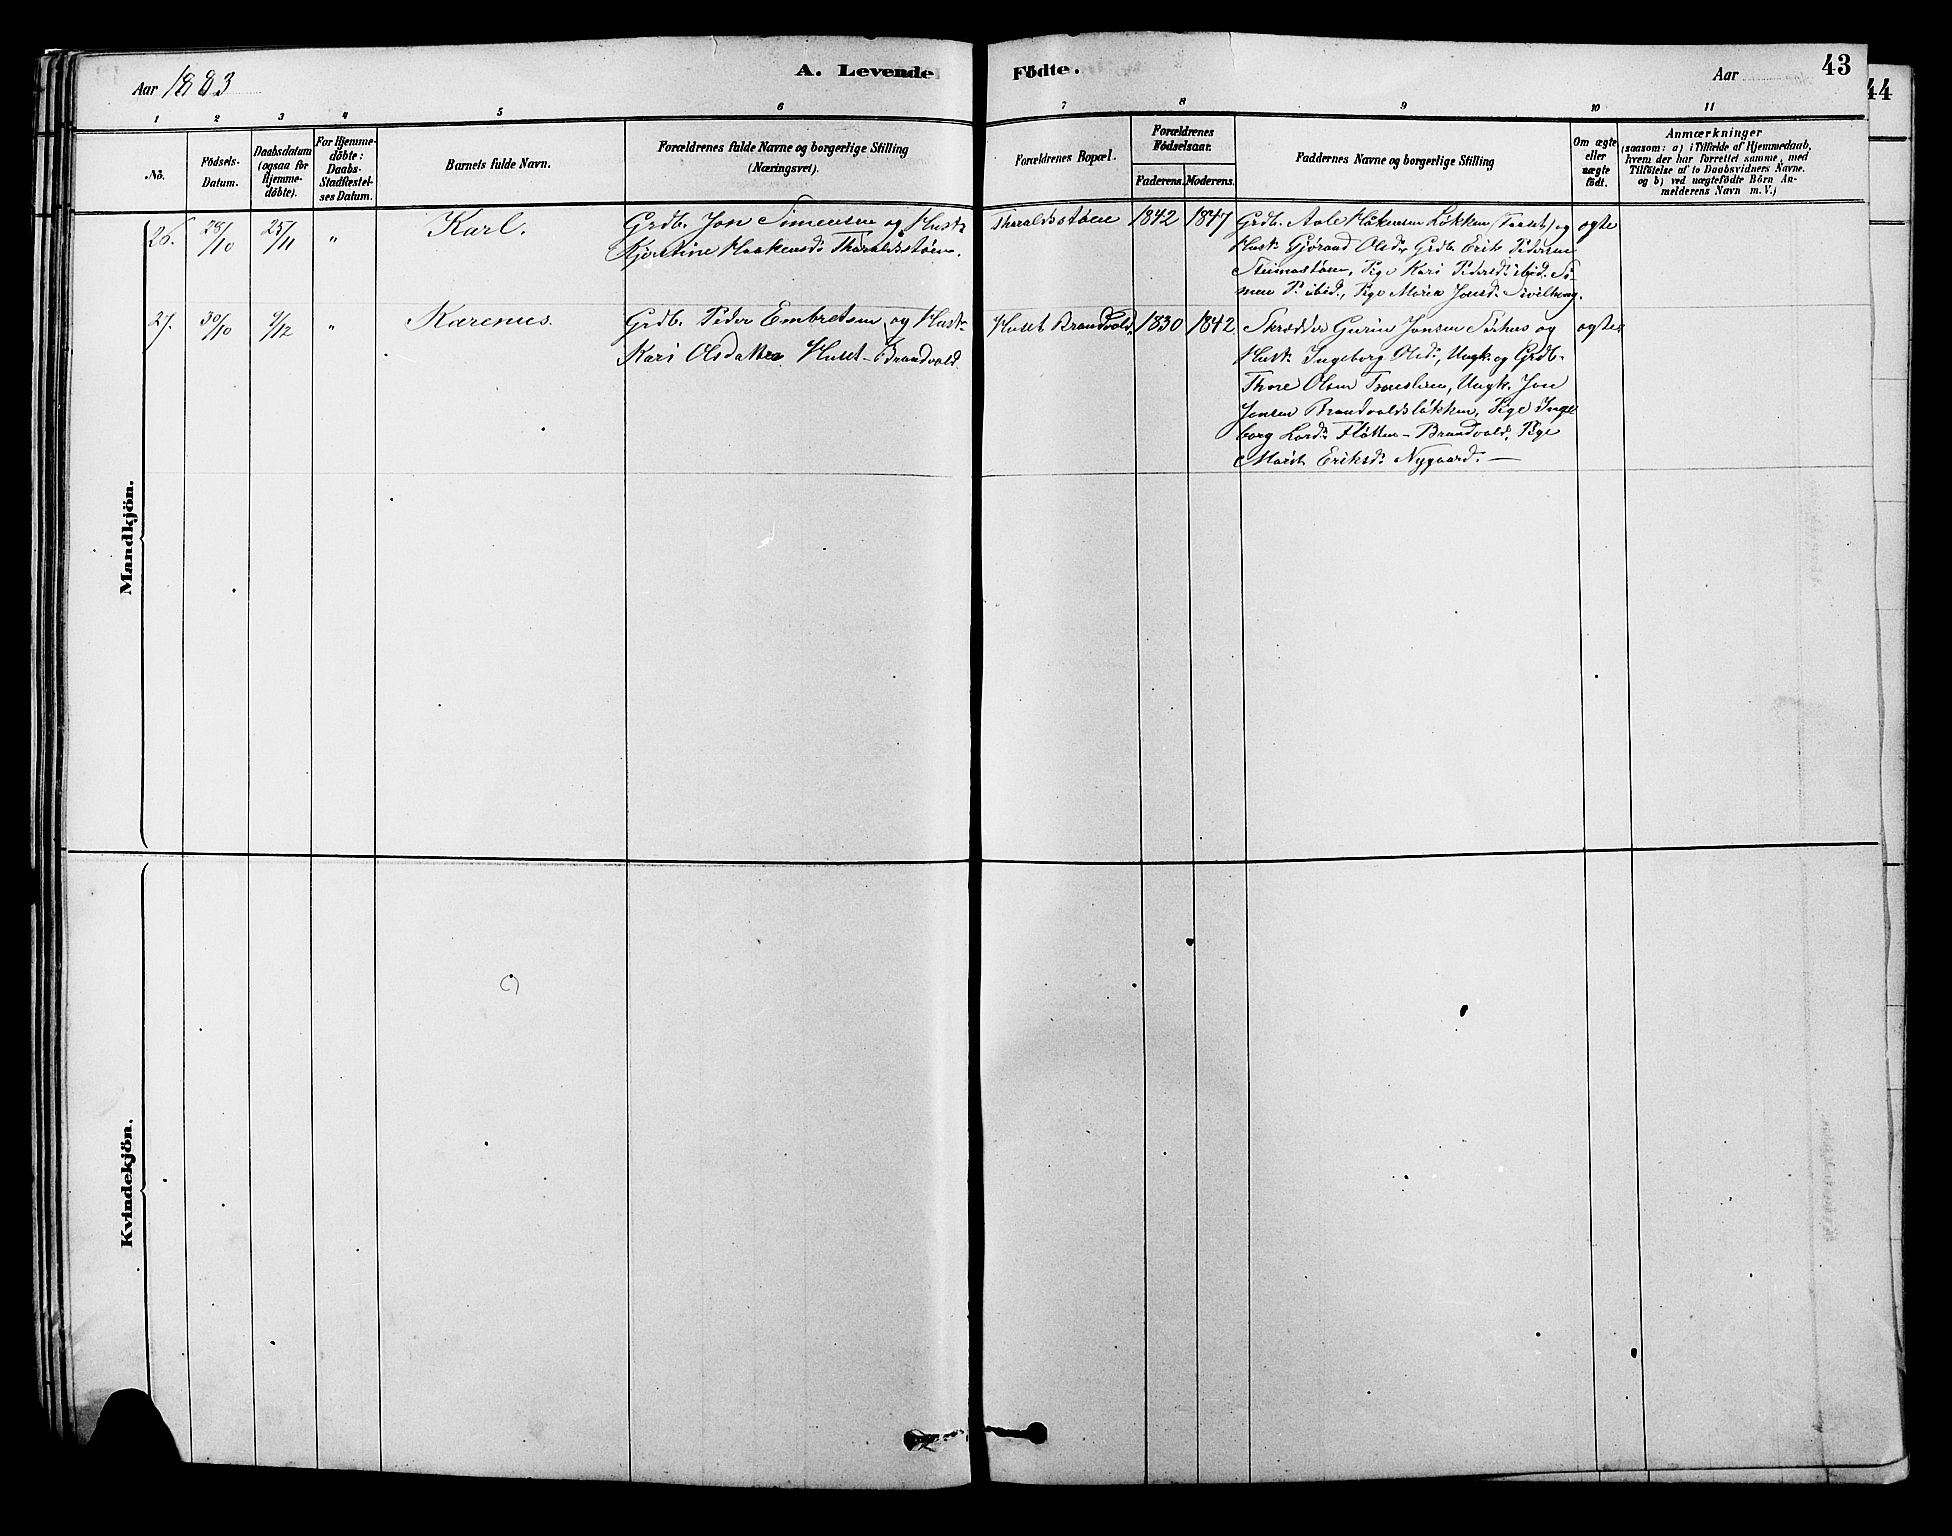 Aar 1883
A. Levende Födte.
Aar
43
44
1 2 3 4 5 6 7 8 9 10 11
No.
Födsels-
Datum.
Daabsdatum
(ogsaa for
Hjemme-
döbte).
For Hjemme-
döbte:
Daabs-
Stadfæstel-
ses Datum.
Barnets fulde Navn.
Forældrenes fulde Navne og borgerlige Stilling
(Næringsvei).
Forældrenes Bopæl.
Forældrenes
Födselsaar.
Faderens. Moderens.
Faddernes Navne og borgerlige Stilling
Om ægte
eller
uægte
födt.
Anmærkninger
(saasom: a) i Tilfælde af Hjemmedaab,
hvem der har forrettet samme, med
Tilföielse af to Daabsvidners Navne.
og b) ved uægtefödte Börn An-
melderens Navn m. V.)
Mandkjön.
26. 28/10 25/11 " Karl.
Grdb. Jon Simensen og Hustr.
Kjerstine Haakensd. Tharaldsstøen.
Tharaldsstøen 1842 1847
Grdb. Aole Håkensen Løkken (Taaset) og
Hustr. Gjørand Olsdr, Grdb. Erik Pedersen
Steimostøen, Pige Kari Pedersd. ibid. Si-
men P. ibid., Pige Marie Jonsd.
ægte
27. 30/10 9/12 " Karenus.
Grdb. Peder Embretsen og Hustr.
Kari Olsdatter Huset-Brandvold.
Huset Brandvold. 1830 1842.
Skrædder Jonsen Sørhus og
Hustr. Ingeborg Olsd., Ungk. og Grdb.
Thore Olsen, Ungk. Jon
Jonsen Brandvoldsløkken, Pige Inge
borg Larsd. Fløtten-Brandvold, Pige
Marit Eriksd. Nygaard. —
ægte
Kvindekjön.